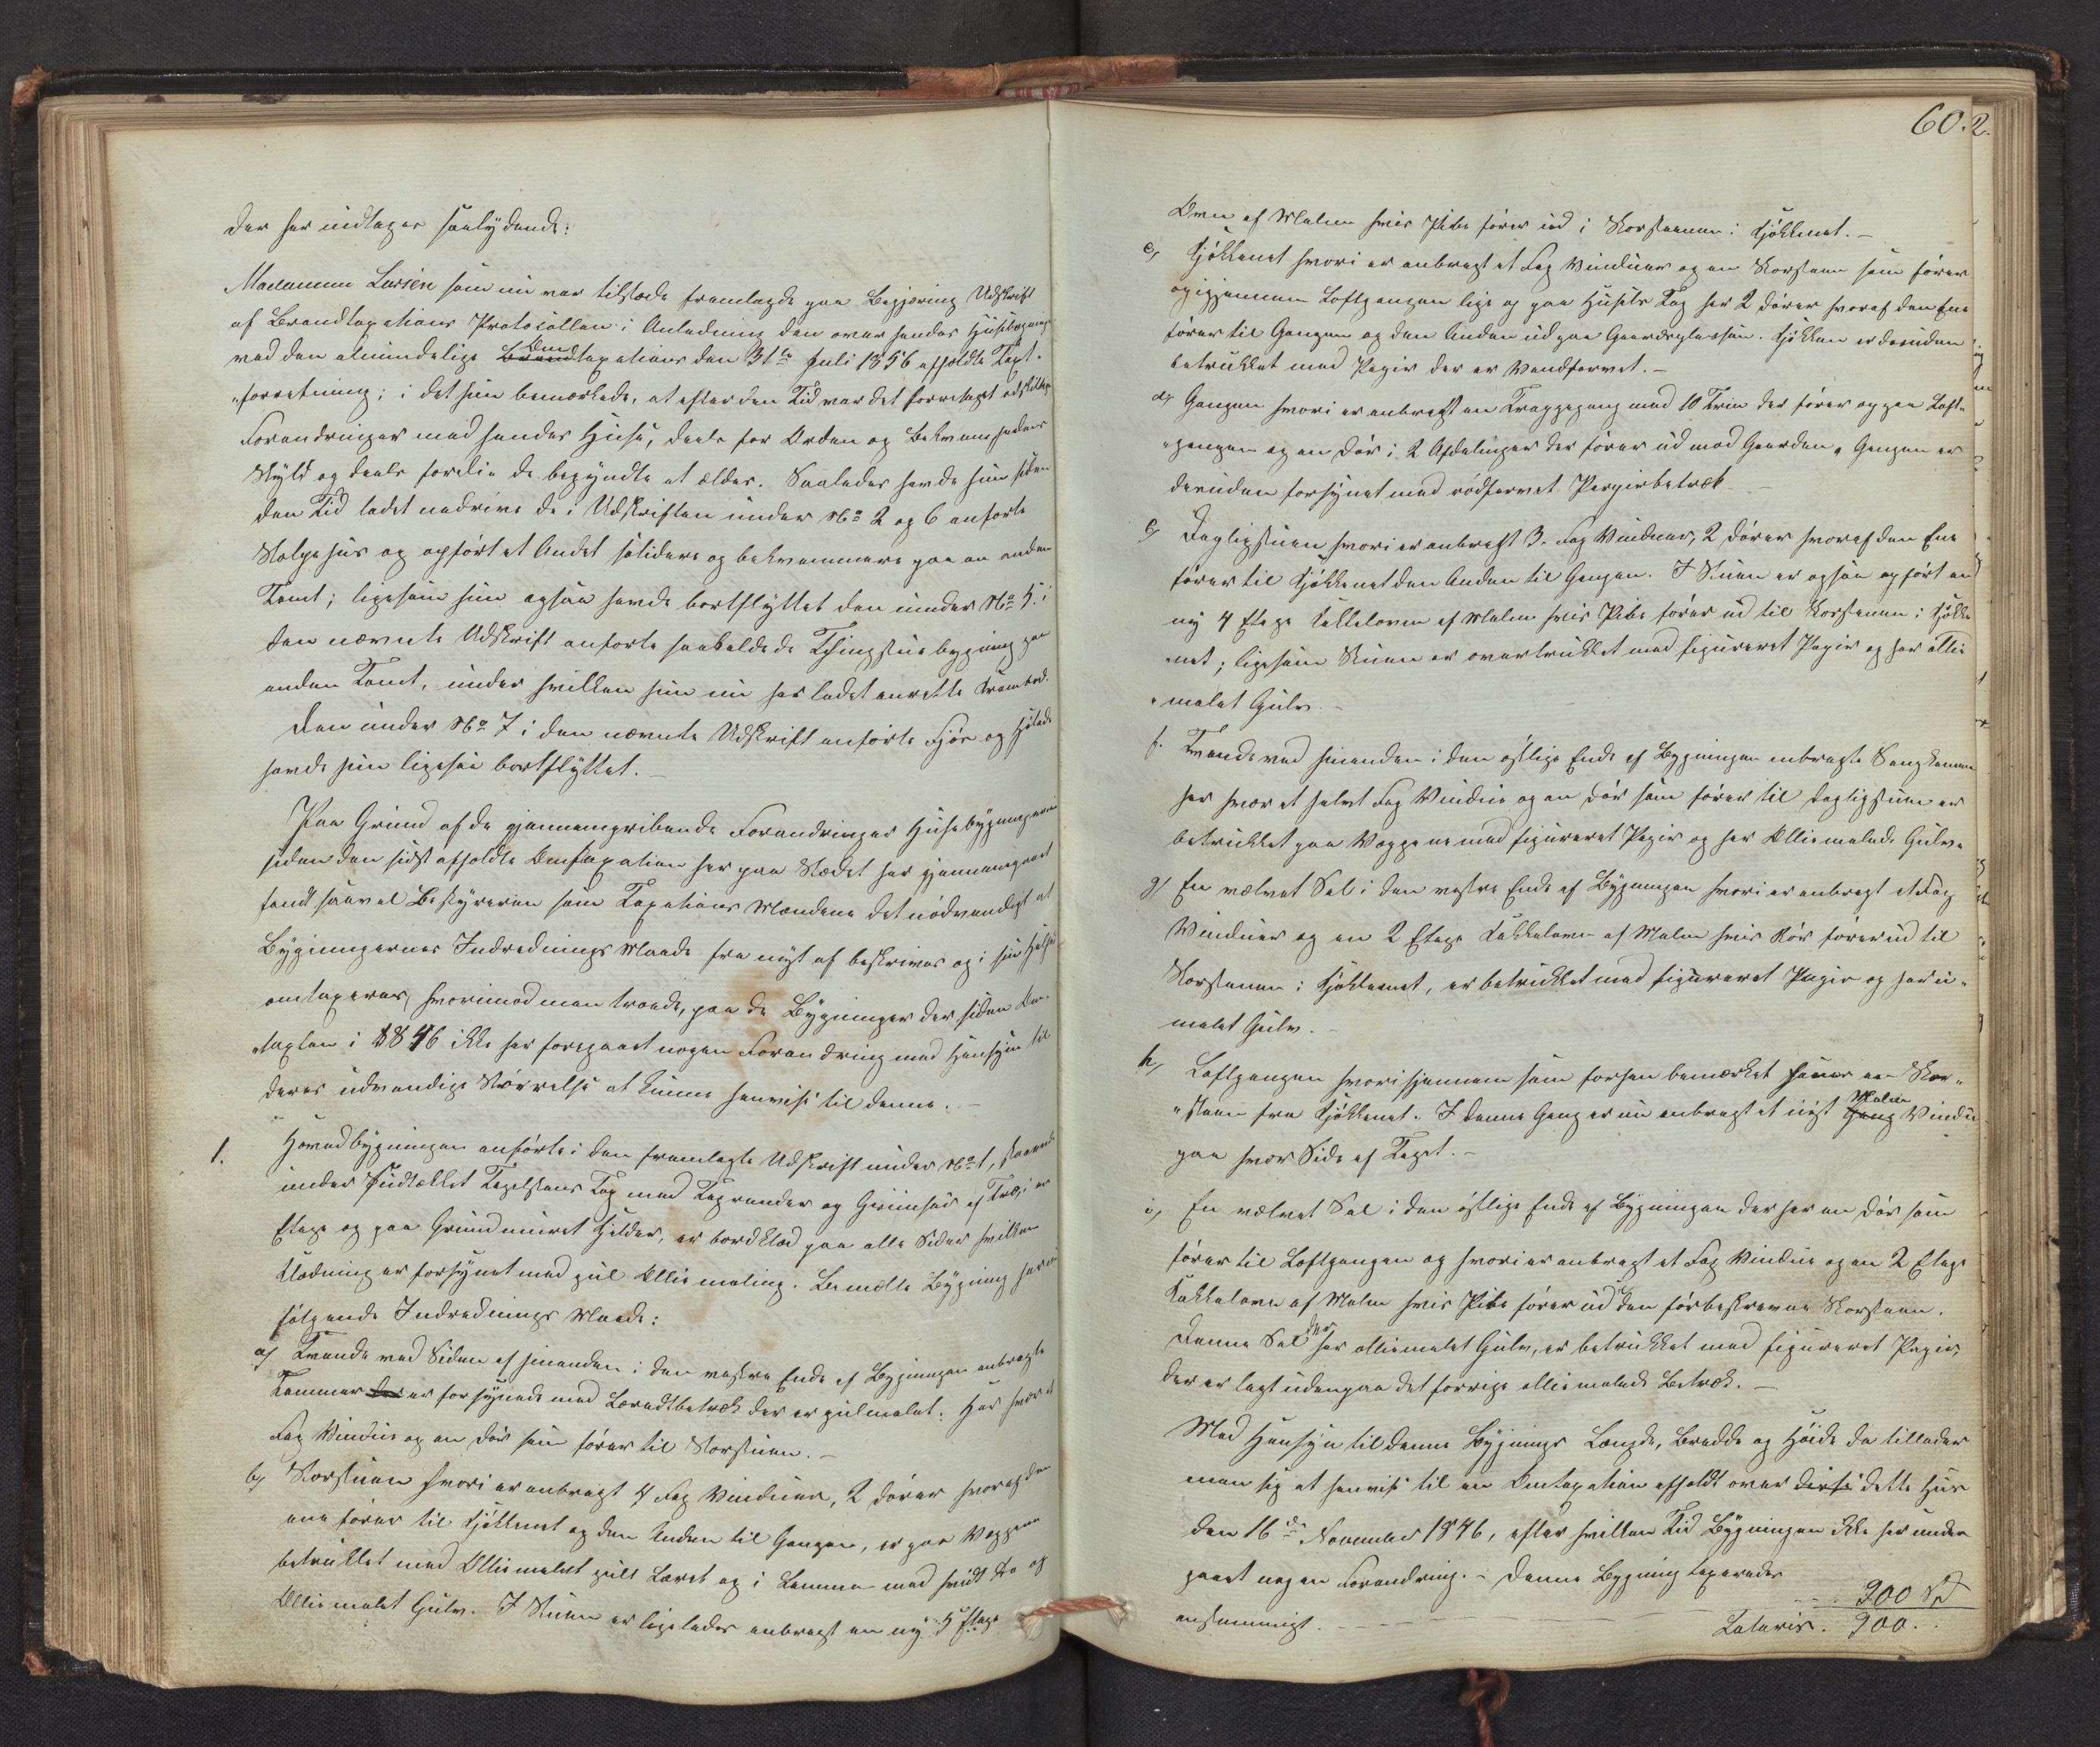 der her indtages saalydende:
Madamme Larsen som nu var tilstæde fremlagde paa Begjæring Udskrift
af Brandtaxations Protocollen i Anledning den over hendes Huusbygninger
ved den almindelige Brandtaxations Om den 31te Juli 1856 afholdte Taxt-
„forretning; i det hun bemærkede, at efter den Tid var det foretaget adskillige
Forandringer med hendes Huse, deels for Orden og Bekvemheds
Skyld og deels fordi de begyndte at ældes. Saaledes havde hun siden
den Tid ladet nedrive de i Udskriften under No 2 og 6 anførte
Stolpehus og opført et Andet solidere og bekvemmere paa en anden
Tomt; ligesom hun ogsaa havde bortflyttet den under No 5 i
den nævnte Udskrift anførte saakaldede Thingstuebygning paa
anden Tomt, under hvilken hun nu har ladet anrette
Den under No 7 i den nævnte Udskrift anførte Fjøs og Hølade
havde hun ligesaa bortflyttet. –
Paa Grund af de gjennemgribende Forandringer Husebygningerne
siden den sidst afholdte Omtaxation her paa Stædet har gjennemgaaet
fandt saavel Bestyreren som Taxations Mændene det nødvendigt at
Bygningernes Indrednings Maade fra nyt af beskrives og i sin Helhed
omtaxeres, hvorimod man troede, paa de Bygninger der siden Om-
„taxten i 1846 ikke har foregaaet nogen Forandring med Hensyn til
deres udvendige Størrelse at kunne henvise til denne. –
1. Hovedbygningen anførte i den fremlagte Udskrift under No 1, staaende
under Tagsteens Tag med Tagrender og Giimser af Træ, i en
Etage og paa Grundmuret Kjelder, er bordklæd paa alle Sider hvilken
Klædning er forsynet med guul Olliemaling. Bemeldte Bygning har nu
følgende Indrednings Maade:
a) Tvende ved Siden af hinanden i den vestre Ende af Bygningen anbragte
Kammer der er forsynede med Lærredtbetræk der er guulmalet; Har hver et
Fag Vindue og en Dør som fører til Storstuen. –
b) Storstuen hvori er anbragt 4 Fag Vinduer, 2 Dører hvoraf den
ene fører til Kjøkkenet og den Anden til Gangen, er paa Væggene
betrukket med Olliemalet guult Læret og i Lemmen med hvidt do og
Olliemalet Gulv. I Stuen er ligeledes anbragt en ny 5 Etage
60. 2.
Ovn af Malm hvis Pibe fører ind i Skorstenen i Kjøkkenet. –
c) Kjøkkenet hvori er anbragt et Fag Vinduer og en Skorsteen som fører
op igjennem Loftgangen lige op paa Husets Tag har 2 Dører hvoraf den Ene
fører til Gangen og den Anden ud paa Gaardspladsen. Kjøkken er desuden
betrukket med Papir der er Vandfarvet. –
d) Gangen hvori er anbragt en Trappegang med 10 Trin der fører op paa Loft-
„gangen og en Dør i 2 Afdelinger der fører ud mod Gaarden. Gangen er
desuden forsynet med rødfarvet Papirbetræk –
e) Dagligstuen hvori er anbragt 3. Fag Vinduer, 2 Dører hvoraf den Ene
fører til Kjøkkenet den Anden til Gangen. I Stuen er ogsaa opført en
ny 4 Etage Kakkelovn af Malm hvis Pibe fører ud til Skorstenen i Kjøkke
„net; ligesom Stuen er overtrukket med figureret Papir og har ollie
„malet Gulv. –
f. Tvende ved hinanden i den østlige Ende af Bygningen anbragte Sengkamre
har hver et halvt Fag Vindue og en Dør som fører til Dagligstuen er
betrukket paa Væggene med figureret Papir og har Olliemalede Gulve
g) En vælvet Sal i den vestre Ende af Bygningen hvori er anbragt et Fag
Vinduer og en 2 Etage Kakkelovn af Malm hvis Rør fører ud til
Skorstenen i Kjøkkenet, er betrukket med figureret Papir og har u-
malet Gulv. –
h) Loftgangen hvori gjennem som forhen bemærket fører en Skor-
„steen fra Kjøkkenet. I denne Gang er nu anbragt et nyt Gang Malm Vindue
paa hver Side af Taget. –
i) En vælvet Sal i den østlige Ende af Bygningen der har en Dør som
fører til Loftgangen og hvori er anbragt et Fag Vindue og en 2 Etage
Kakkelovn af Malm hvis Pibe fører ud i den førbeskrevne Skorsteen.
Denne Sal der har olliemalet Gulv, er betrukket med figureret Papir,
der er lagt udenpaa det forrige olliemalede Betræk. –
Med Hensyn til denne Bygnings Længde, Bredde og Høide da tillader
man sig at henvise til en Omtaxation afholdt over disse dette Huus
den 16de November 1846, efter hvilken Tid Bygningen ikke har under
gaaet nogen Forandring. – Denne Bygning taxeredes
enstemmigt. – – – – 900 Spd
Lateris. 900.